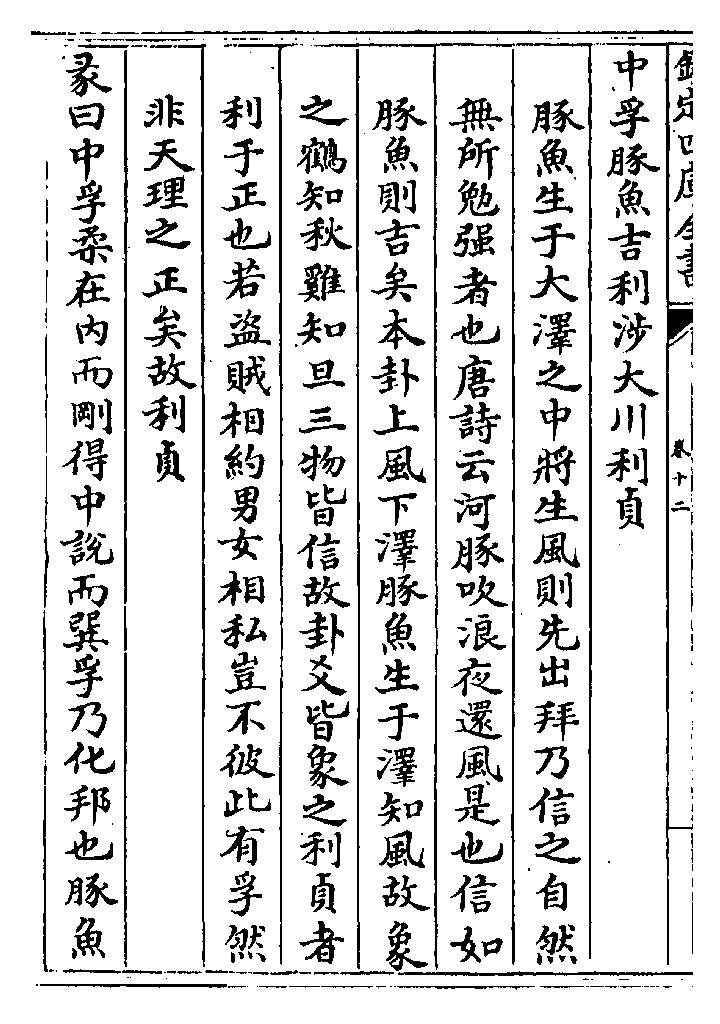 欽定四庫全書
卷十二
中孚豚魚吉利涉大川利貞
豚魚生于大澤之中將生風則先出拜乃信之自然
無所勉强者也唐詩云河豚吹浪夜還風是也信如
豚魚則吉矣本卦上風下澤豚魚生于澤知風故象
之鶴知秋雞知旦三物皆信故卦爻皆象之利貞者
利于正也若盜賊相約男女相私豈不彼此有孚然
非天理之正矣故利貞
彖曰中孚柔在內而剛得中說而巽孚乃化邦也豚魚